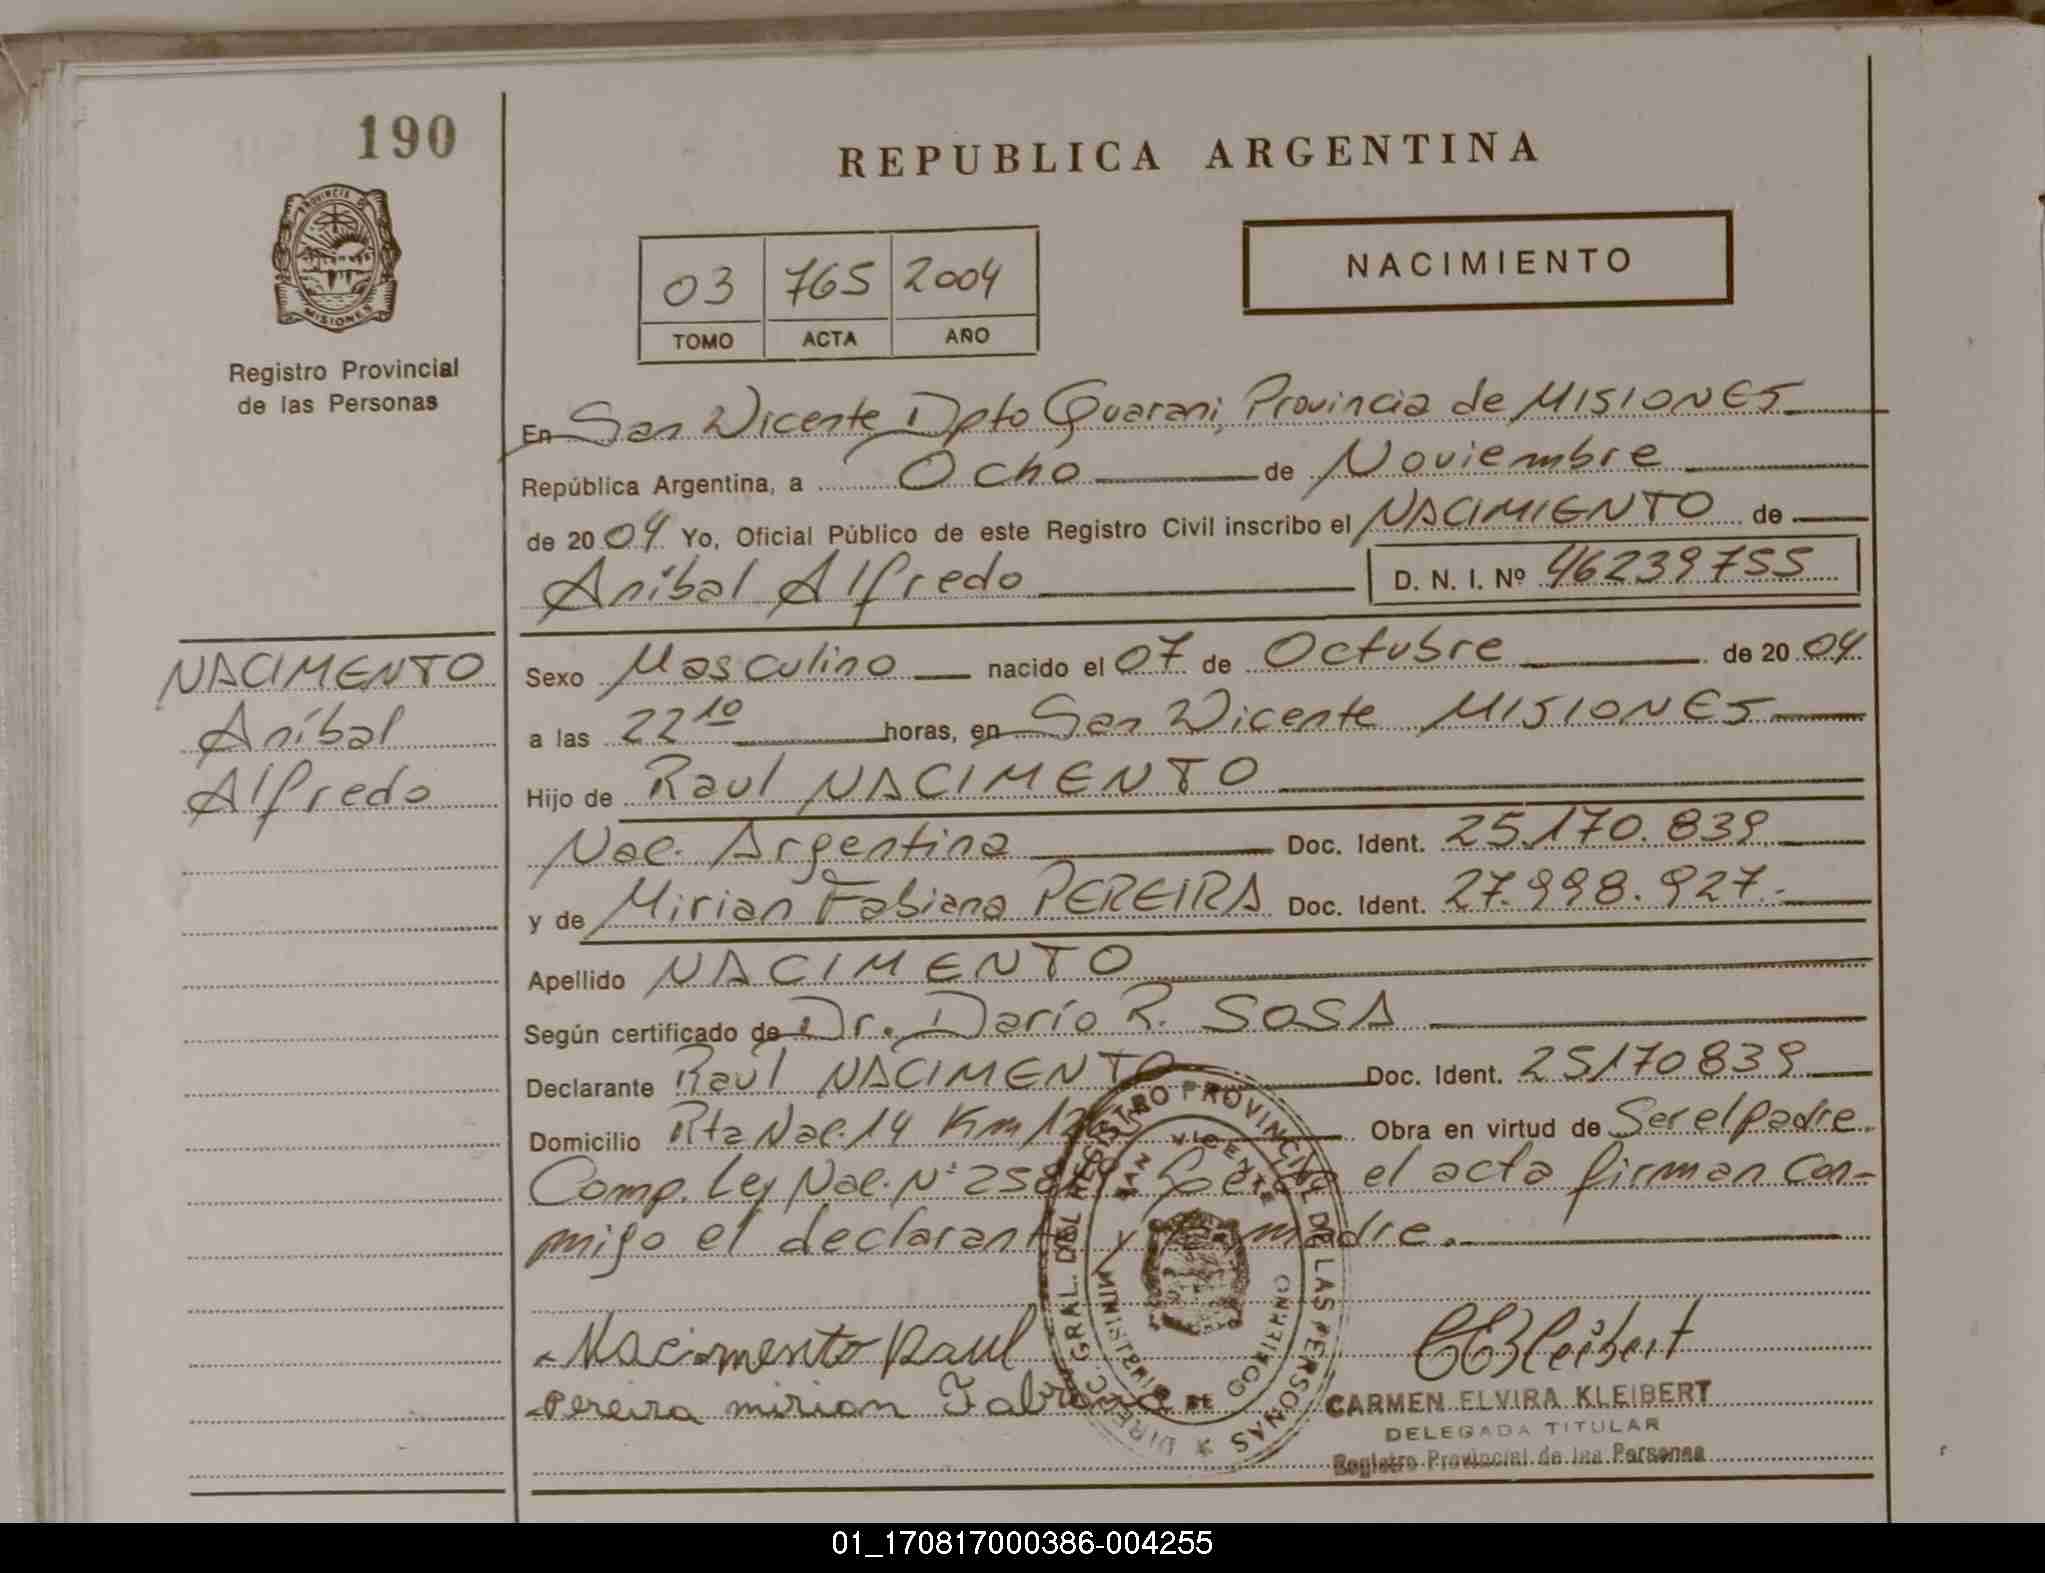 190
REPUBLICA ARGENTINA
PROVINCIA DE
MISIONES
Registro Provincial
de las Personas
03 765 2004
TOMO ACTA AÑO
NACIMIENTO
En San Vicente Dpto Guarani, Provincia de MISIONES
República Argentina, a Ocho de Noviembre
de 2004 Yo, Oficial Público de este Registro Civil inscribo el NACIMIENTO de
Aníbal Alfredo D. N. I. Nº 46239755
NACIMENTO
Aníbal
Alfredo
Sexo Masculino nacido el 07 de Octubre de 2004
a las 22 10 horas, en San Vicente MISIONES
Hijo de Raul NACIMENTO
Nac. Argentina Doc. Ident. 25.170.839
y de Mirian Fabiana PEREIRA Doc. Ident. 27.998.927.
Apellido NACIMENTO
Según certificado de Dr. Darío R. SOSA
Declarante Raul NACIMENTO Doc. Ident. 25170839
Domicilio Rta Nac. 14 Km Obra en virtud de Ser el padre
Comp. Ley Nac. Nº el acta firman con-
migo el declarante y madre.
DIRECC. GRAL. DEL REGISTRO PROVINCIAL DE LAS PERSONAS
SAN VICENTE
MINISTERIO DE GOBIERNO
Nacimento Raul
Pereira mirian Fabiana
CEKleibert
CARMEN ELVIRA KLEIBERT
DELEGADA TITULAR
Registro Provincial de las Personas
01_170817000386-004255